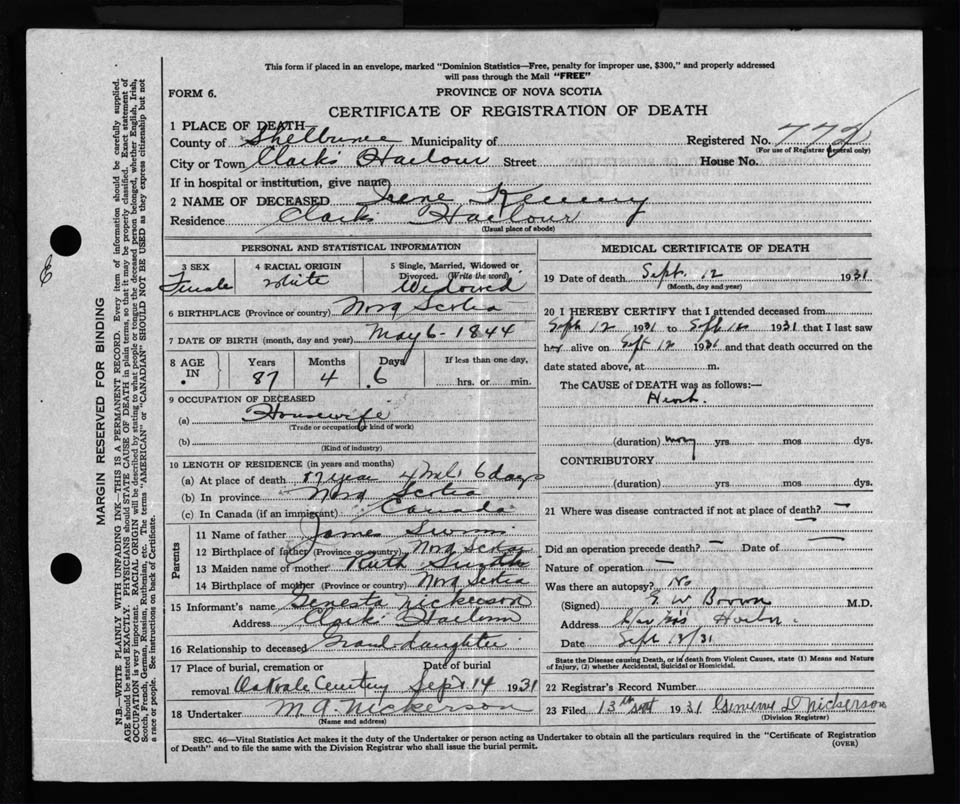 This form if placed in an envelope, marked "Dominion Statistics—Free, penalty for improper use, $300," and properly addressed
will pass through the Mail "FREE"
FORM 6.
PROVINCE OF NOVA SCOTIA
CERTIFICATE OF REGISTRATION OF DEATH
1 PLACE OF DEATH
County of Shelburne Municipality of Registered No. 772
(For use of Registrar General only)
City or Town Clarks Harbour Street House No.
If in hospital or institution, give name
2 NAME OF DECEASED Irene Kenney
Residence Clarks Harbour
(Usual place of abode)
PERSONAL AND STATISTICAL INFORMATION
3 SEX Female
4 RACIAL ORIGIN white
5 Single, Married, Widowed or Divorced. (Write the word) Widowed
6 BIRTHPLACE (Province or country) Nova Scotia
7 DATE OF BIRTH (month, day and year) May 6 - 1844
8 AGE IN Years 87 Months 4 Days 6 If less than one day, hrs. or min.
9 OCCUPATION OF DECEASED
(a) Housewife
(Trade or occupation or kind of work)
(b)
(Kind of industry)
10 LENGTH OF RESIDENCE (in years and months)
(a) At place of death 87 year 4 6 days
(b) In province Nova Scotia
(c) In Canada (if an immigrant) Canada
Parents
11 Name of father James Swim
12 Birthplace of father (Province or country) Nova Scotia
13 Maiden name of mother Ruth Smith
14 Birthplace of mother (Province or country) Nova Scotia
15 Informant's name Genesta Nickerson
Address Clarks Harbour
16 Relationship to deceased Grand daughter
17 Place of burial, cremation or removal Date of burial
Cemetery Sept 14 1931
18 Undertaker M A Nickerson
(Name and address)
MEDICAL CERTIFICATE OF DEATH
19 Date of death Sept. 12 1931
(Month, day and year)
20 I HEREBY CERTIFY that I attended deceased from
Sept 12 1931 to Sept 12 1931 that I last saw
her alive on Sept 12 1931 and that death occurred on the
date stated above, at m.
The CAUSE of DEATH was as follows:—
Heart.
(duration) many yrs. mos dys.
CONTRIBUTORY
(duration) yrs. mos dys.
21 Where was disease contracted if not at place of death? —
Did an operation precede death? — Date of —
Nature of operation —
Was there an autopsy? No
(Signed) E W Brown M.D.
Address Harbor.
Date Sept 12/31
State the Disease causing Death, or in death from Violent Causes, state (1) Means and Nature
of Injury, (2) whether Accidental, Suicidal or Homicidal.
22 Registrar's Record Number
23 Filed 13th Sept 1931 Nickerson
(Division Registrar)
SEC. 46—Vital Statistics Act makes it the duty of the Undertaker or person acting as Undertaker to obtain all the particulars required in the "Certificate of Registration
of Death" and to file the same with the Division Registrar who shall issue the burial permit.
(OVER)
MARGIN RESERVED FOR BINDING
N.B.—WRITE PLAINLY WITH UNFADING INK—THIS IS A PERMANENT RECORD. Every item of information should be carefully supplied.
AGE should be stated EXACTLY. PHYSICIANS should STATE CAUSE OF DEATH in plain terms, so that it may be properly classified. Exact statement of
OCCUPATION is very important. RACIAL ORIGIN will be described by stating to what people or tongue the deceased person belonged, whether English, Irish,
Scotch, French, German, Russian, Ruthenian, etc. The terms "AMERICAN" or "CANADIAN" SHOULD NOT BE USED as they express citizenship but not
a race or people. See instructions on back of Certificate.